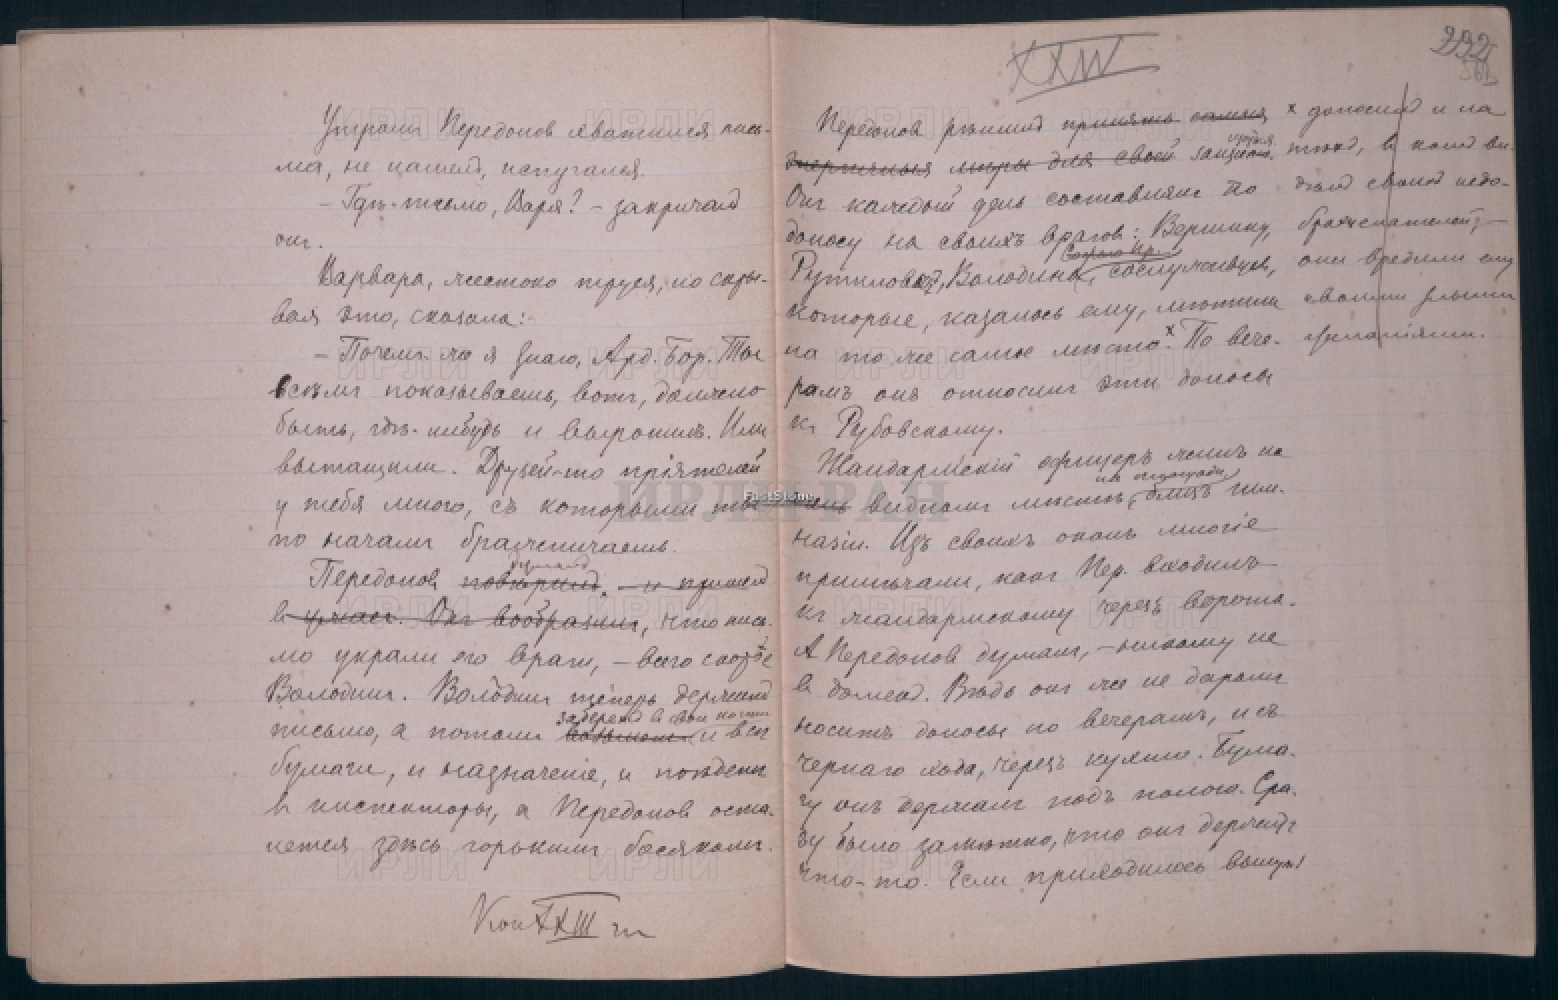 Утромъ Передоновъ хватился пись-
ма, не нашелъ, испугался.
– Гдѣ письмо, Варя? – закричалъ
онъ.
Варвара, жестоко труся, но скры-
вая это, сказала:
– Почемъ же я знаю, Ард. Бор. Ты
всѣмъ показываешь, вотъ, должно
быть, гдѣ-нибудь и выронилъ. Или
вытащили. Друзей-то пріятелей
у тебя много, съ которыми ты
по ночамъ бражничаешь.
думалъ
Передоновъ повѣрилъ. – и пришелъ
въ ужасъ. Онъ вообразилъ, что пись-
мо украли его враги, – всего скорѣе
Володинъ. Володинъ теперь держитъ
заберетъ въ свои когти
письмо, а потомъ и всѣ
бумаги, и назначеніе, и поѣдетъ
въ инспекторы, а Передоновъ оста-
нется здѣсь горькимъ босякомъ.
Кон XXIII гл
XXIV
222
Передоновъ рѣшилъ принять самыя
энергичныя мѣры для своей защиты.
Онъ каждый день составлялъ по
доносу на своихъ враговъ: Вершину,
Рутиловыхъ, Володина, сослуживцевъ,
которые, казалось ему, мѣтили
на то же самое мѣсто. х По вече-
рамъ онъ относилъ эти доносы
къ Рубовскому.
Жандармскій офицеръ жилъ на
на площади
видномъ мѣстѣ, близъ гим-
назіи. Изъ своихъ оконъ многіе
примѣчали, какъ Пер. входилъ
къ жандармскому черезъ ворота.
А Передоновъ думалъ, – никому не
въ домекъ. Вѣдь онъ же не даромъ
носитъ доносы по вечерамъ, и съ
чернаго хода, черезъ кухню. Бума-
гу онъ держалъ подъ полою. Сра-
зу было замѣтно, что онъ держитъ
что-то. Если приходилось вынуть
х доносилъ и на
тѣхъ, въ комъ ви-
дѣлъ своихъ недо-
брожелателей, –
они вредили ему
своими
ИРЛИ РАН
FastStone